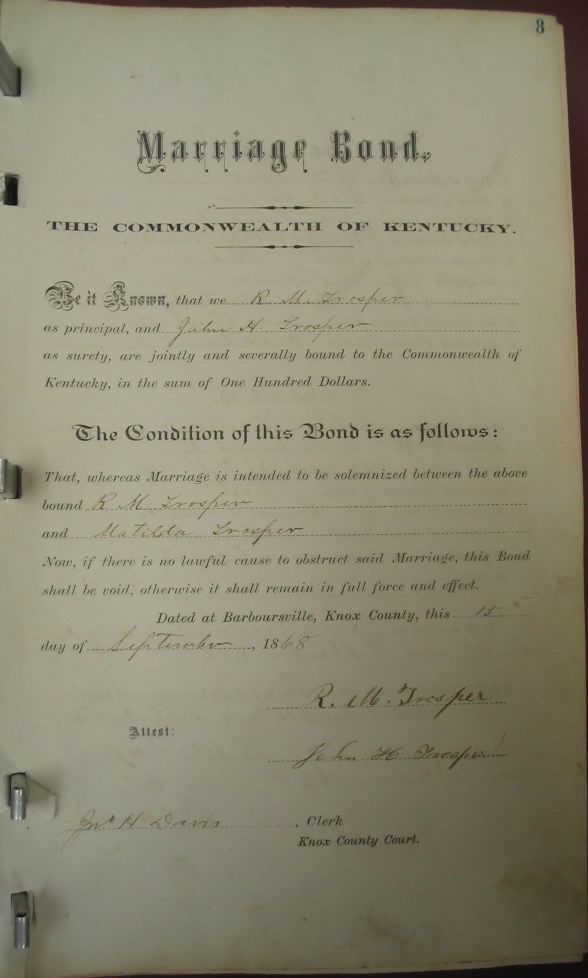 8
Marriage Bond.
THE COMMONWEALTH OF KENTUCKY.
Be it Known, that we R. M. Trosper
as principal, and John H. Trosper
as surety, are jointly and severally bound to the Commonwealth of
Kentucky, in the sum of One Hundred Dollars.
The Condition of this Bond is as follows:
That, whereas Marriage is intended to be solemnized between the above
bound R M Trosper
and Matilda Trosper
Now, if there is no lawful cause to obstruct said Marriage, this Bond
shall be void, otherwise it shall remain in full force and effect.
Dated at Barboursville, Knox County, this 15th
day of September, 1868
R. M. Trosper
Attest:
John H Trosper
Jno H Davis. Clerk
Knox County Court.